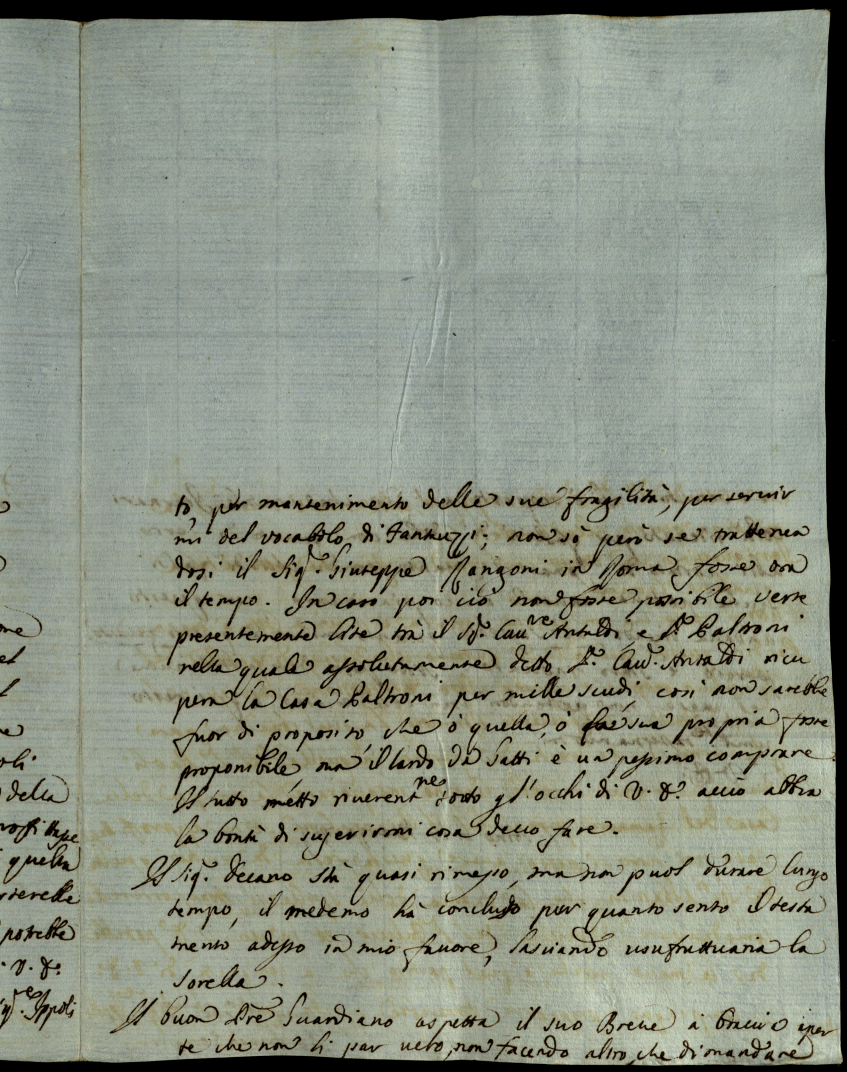 to, per mantenimento delle sue fragilità, per servir
mi del vocabolo di Fantuzzi; non sò però se trattenen
dosi il Sig.r Giuseppe Rangoni in Roma fosse ora
il tempo. In caso poi ciò non fosse possibile verte
presentemente lite trà il S.r Cau.re Antaldi e S.r Paltroni
nella quale assolutamente detto S.r Cau.r Antaldi ricu
pera la Casa Paltroni per mille scudi, così non sarebbe
fuor di proposito che ò quella, ò sua propria fosse
proponibile, ma il lardo da Gatti è un pessimo comprare.
Il tutto metto riverent.ne sotto gl'occhi di V. S. acciò abbia
la bontà di sugerirmi cosa devo fare.
Il Sig.r Decano stà quasi rimesso, ma non puol durare lungo
tempo, il medemo hà concluso per quanto sento il testa
mento adesso in mio favore, lasciando usufruttuaria la
Sorella.
Il buon Pre Guardiano aspetta il suo Breve à braccie aper
te che non li par vero, non facendo altro che dimandare
della
quella
potrebbe
V. S.